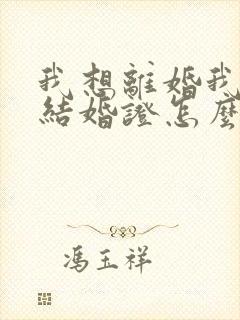 我想離婚我
結婚證怎麼
馮玉祥